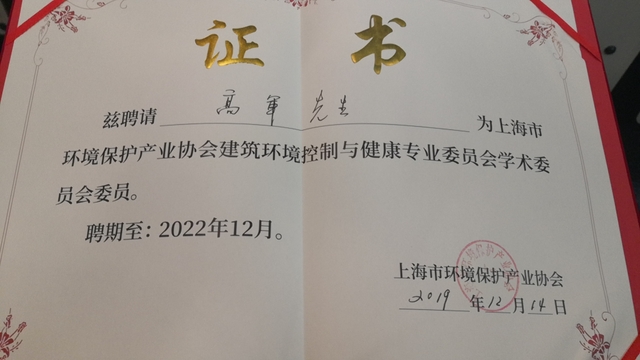 证 书
兹聘请 高军 先生 为上海市
环境保护产业协会建筑环境控制与健康专业委员会学术委
员会委员。
聘期至：2022年12月。
上海市环境保护产业协会
2019年12月14日